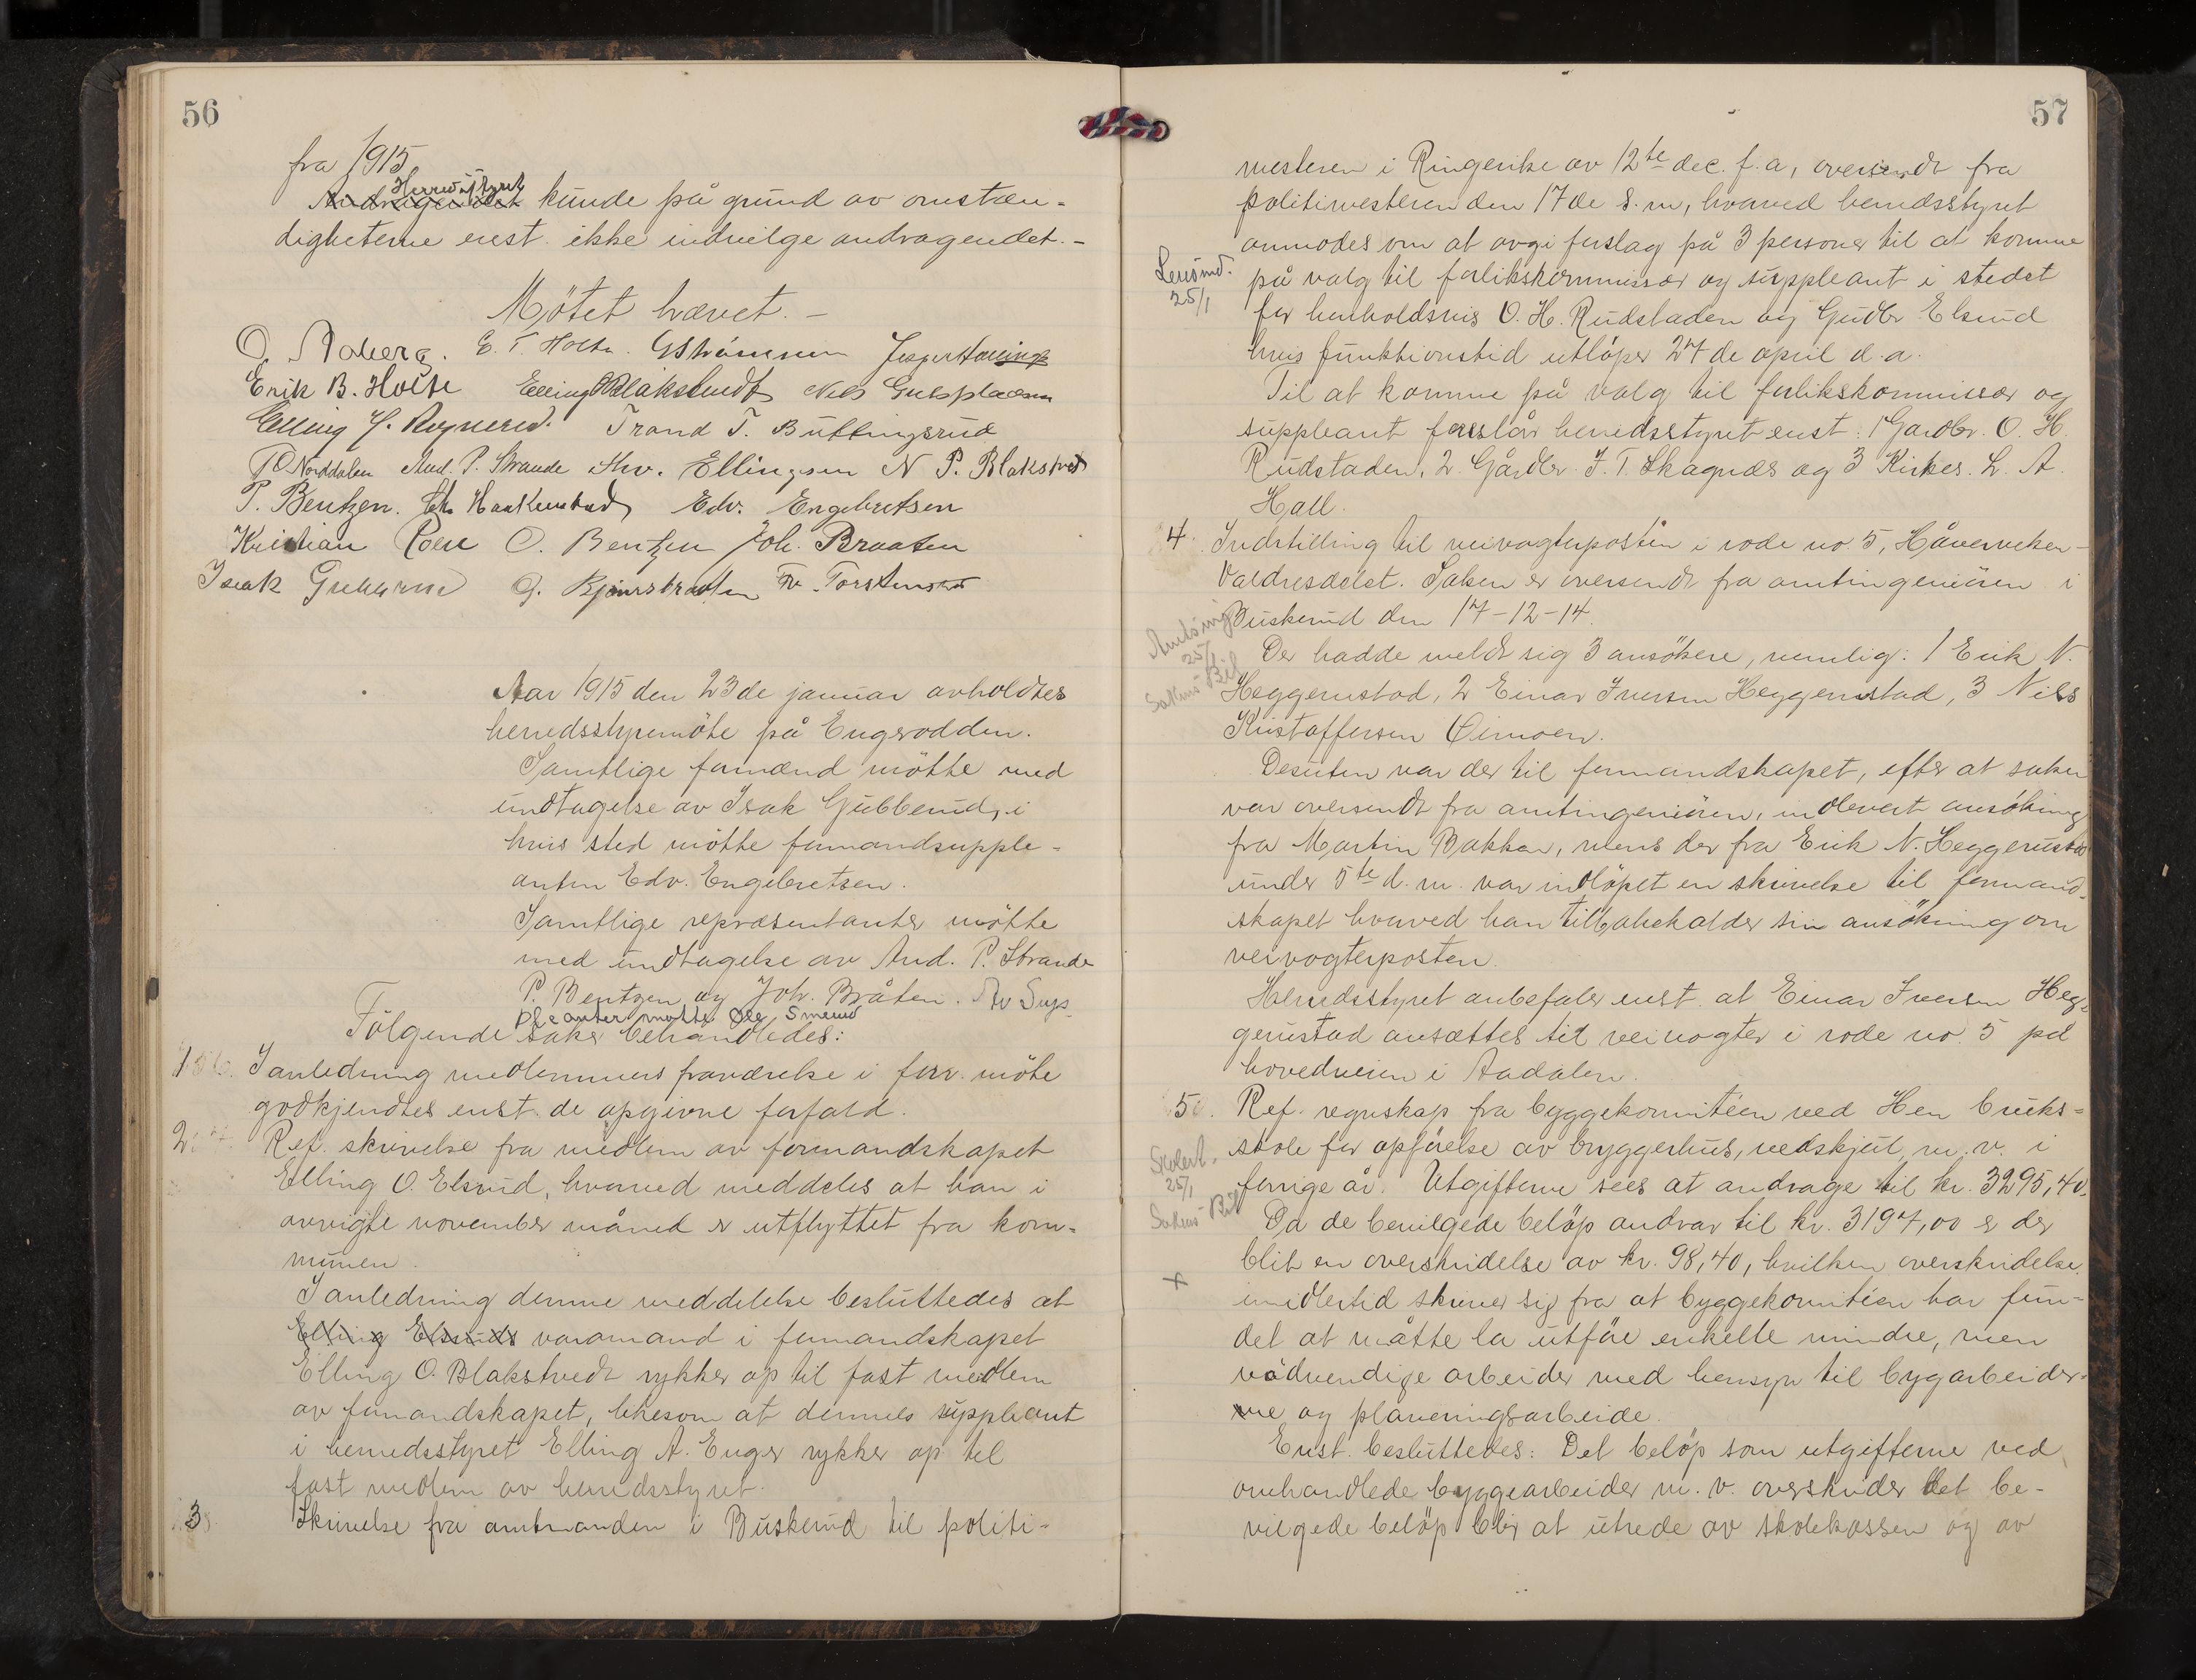 56
fra 1915.
Herredsstyret
Andragendet kunde på grund av omstæn-
digheterne enst. ikke indvilge andragendet. -
Mötet hævet. -
O. Aaberg. E. T. Holte. G Strömmen
Erik B. Holte Elling O Blakstvedt Nils Gulsplassen
Elling Trond T. Buttingsrud
T O Norddalen And. P. Strande Thv. Ellingsen N P. Blakstvedt
P. Bentzen. Edv. Engebretsen
Kristian Roen O. Bentzen Joh. Braaten
Isak Gubberud G. Bjönsbraaten
Aar 1915 den 23de januar avholdtes
herredsstyremöte på Engerodden.
Samtlige formænd mötte med
undtagelse av Isak Gubberud, i
hvis sted mötte formandsupple-
anten Edv. Engebretsen.
Samtlige repræsentanter mötte
med undtagelse av And. P. Strande
P. Bentzen og Joh. Bråten. Av Sup-
pleanter mötte Ole Smerud
Fölgende saker behandledes:
1 I anledning medlemmers fraværelse i forr. möte
godkjendtes enst. de opgivne forfald.
2 Ref. skrivelse fra medlem av formandskapet
Elling O. Elsrud, hvorved meddeles at han i
avvigte november måned er utflyttet fra kom-
munen.
I anledning denne meddelelse besluttedes at
Elling Elsruds varamand i formandskapet
Elling O. Blakstvedt rykker op til fast medlem
av formandskapet, likesom at dennes suppleant
i herredsstyret Elling A. Enger rykker op til
fast medlem av herredsstyret.
3 Skrivelse fra amtmanden i Buskerud til politi-
57
mesteren i Ringerike av 12te dec. f. a, oversendt fra
politimesteren den 17de s. m, hvorved herredsstyret
anmodes om at avgi forslag på 3 personer til at komme
Lensmd.
25/1
på valg til forlikskommissær og suppleant i stedet
for henholdsvis O. H. Rudstaden og Gudbr. Elsrud
hvis funktionstid utlöper 27de april d. a.
Til at komme på valg til forlikskommissær og
suppleant foreslår herredsstyret enst: 1 Gardbr. O. H.
Rudstaden, 2. Gårdbr. J. T. Skagnæs og 3 Kirkes. L. A.
Hall.
4. Indstilling til veivogterposten i rode no. 5, Håverviken-
Valdresdelet. Saken er oversendt fra amtingeniören i
Amtsing
25/1
Buskerud den 17-12-14.
Der hadde meldt sig 3 ansökere, nemlig: 1 Erik N.
Sakens Bil
Heggerustad, 2 Einar Iversen Heggerustad, 3 Nils
Kristoffersen Öimoen.
Desuten var der til formandskapet, efter at saken
var oversendt fra amtingeniören, indlevert ansökning
fra Martin Bakken, mens der fra Erik N. Heggerustad
under 5te d. m. var indlöpet en skrivelse til formand-
skapet hvorved han tilbakekalder sin ansökning om
veivogterposten.
Herredsstyret anbefaler enst. at Einar Iversen Heg-
gerustad ansættes til veivogter i rode no. 5 på
hovedveien i Aadalen.
5. Ref. regnskap fra byggekomitéen ved Hen bruks-
skole for opförelse av bryggerhus, vedskjul m. v. i
Skolest.
25/1
forrige år. Utgifterne sees at andrage til kr. 3295,40.
Sakens Bil
Da de bevilgede belöp andrar til kr. 3197,00 er der
blit en overskridelse av kr. 98,40, hvilken overskridelse
x
imidlertid skriver sig fra at byggekomitéen har fun-
det at måtte la utföre enkelte mindre, men
nödvendige arbeider med hensyn til bygarbeider-
ne og planeringsarbeide.
Enst. besluttedes: Det belöp som utgifterne ved
omhandlede byggearbeider m. v. overskrider det be-
vilgede belöp blir at utrede av skolekassen og av